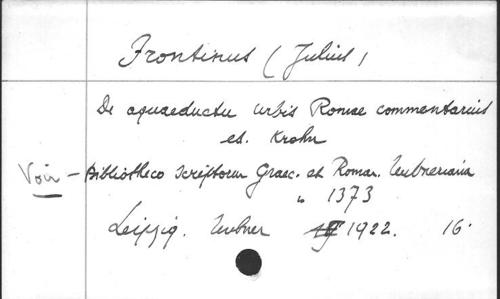 Frontinus (Julius)
De aquaeductu urbis Romae commentarius
ed. Krohn
Voir - Bibliotheca scriptorum Graec. et Roman. Teubneriana
" 1373
Leipzig. Teubner 1922. 16°